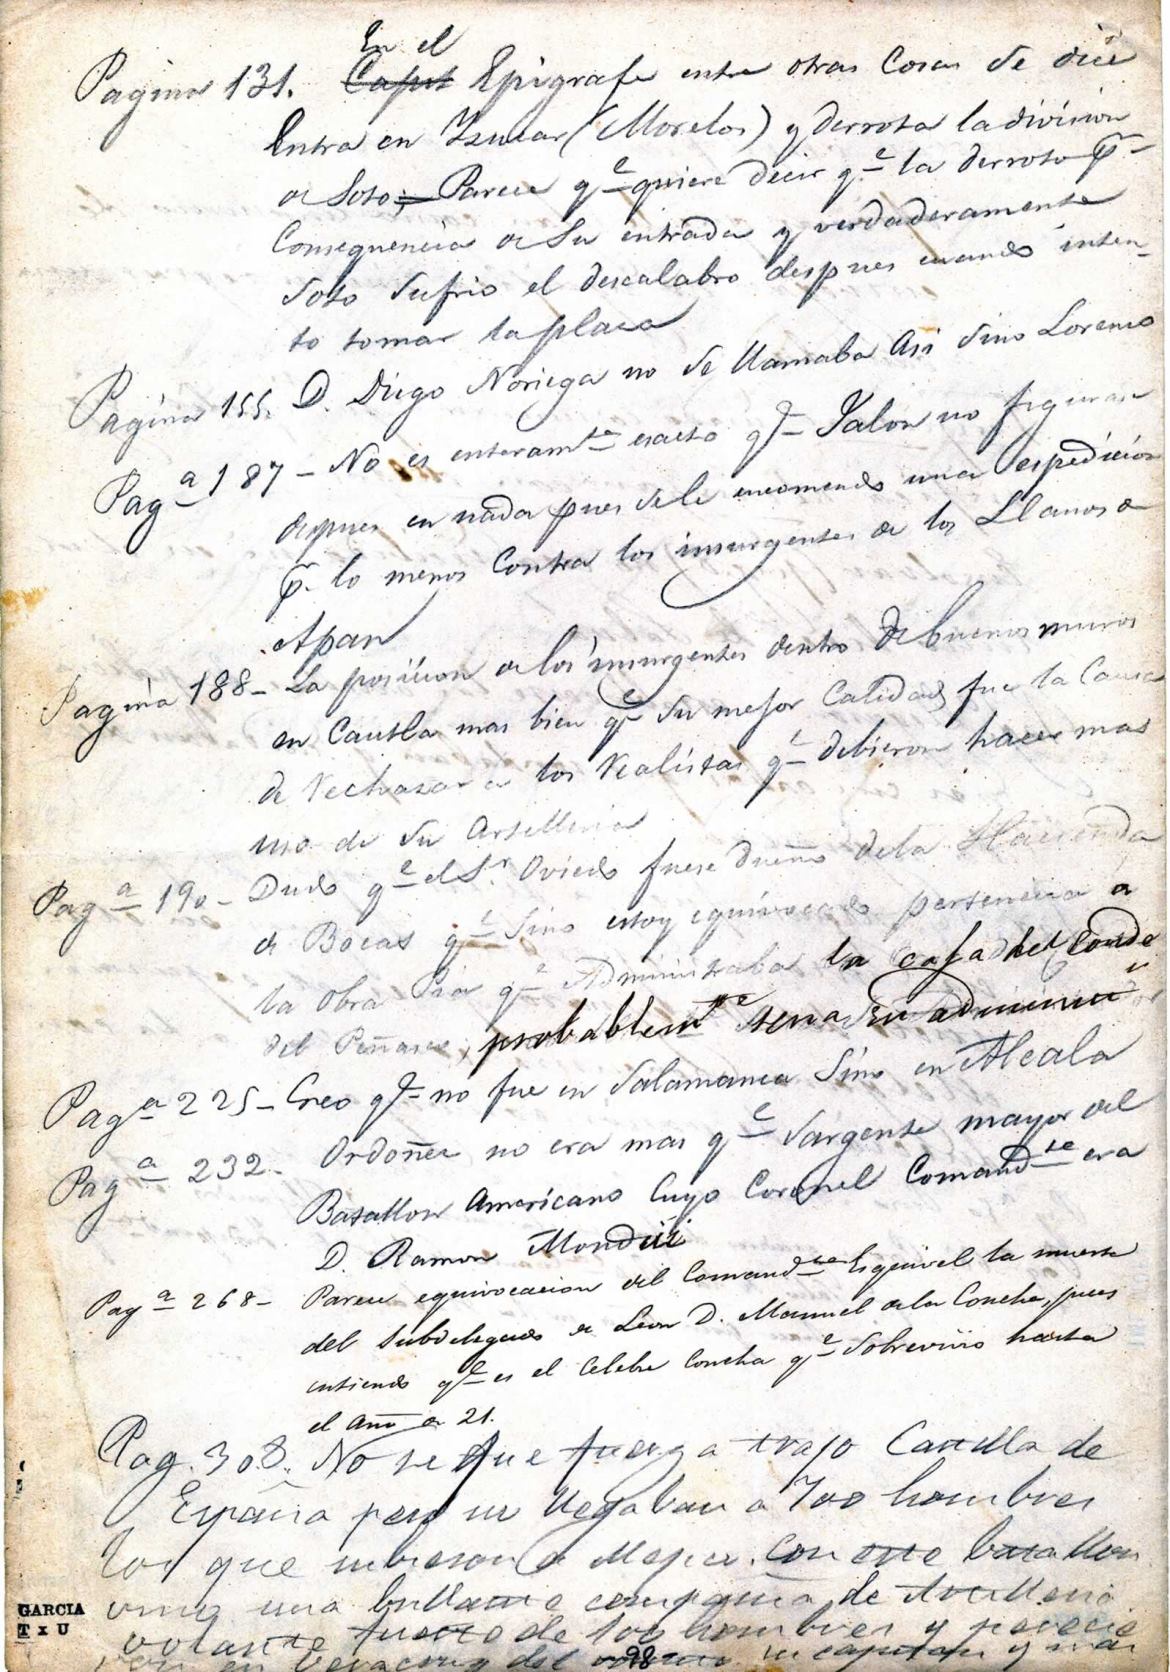 En el
Pagina 131. Caput Epigrafe entre otras Cosas se dice
Entra en Izucar (Morelos) y derrota la division
de Soto; Parece qe quiere decir qe la derroto pr
Consequencia de su entrada y verdaderamente
Soto sufrio el descalabro despues cuando inten-
to tomar la plaza
Pagina 155. D. Diego Noriega no se llamaba Asi sino Lorenzo
Paga 187 - No es enteramte esacto qe Jalon no figurase
despues en nada pues se le encomendo una espedicion
pr lo menos Contra los insurgentes de los Llanos de
Apan
Pagina 188 - La posicion de los insurgentes dentro de buenos muros
en Cautla mas bien qe su mejor Calidad fue la Causa
de rechazar a los realistas qe debieron hacer mas
uso de su Artilleria
Paga 190 - Dudo qe el Sr. Oviedo fuese dueño de la Hacienda
de Bocas qe sino estoy equivocado pertenecia a
la Obra Pia qe Administraba la casa del Conde
del Peñasco, probablemte seria su
Paga 225 - Creo qe no fue en Salamanca sino en Alcala
Paga 232 - Ordoñez no era mas qe Sargento mayor del
Batallon Americano Cuyo Coronel Comandte era
D. Ramon Monduí
Paga 268 - Parece equivocacion del Comandte Esquivel la muerte
del Subdelegado de Leon D. Manuel de la Concha, pues
entiendo qe es el Celebre Concha qe Sobrevivio hasta
el Año de 21.
Pag. 308. No se que fuerza trajo Castilla de
España pero no llegaban a 700 hombres
los que de Mejico. Con este batallon
vino una brillante compañia de Artilleria
volante de 100 hombres y
en Veracruz del 98 su capitan y mas
GARCIA
T x U